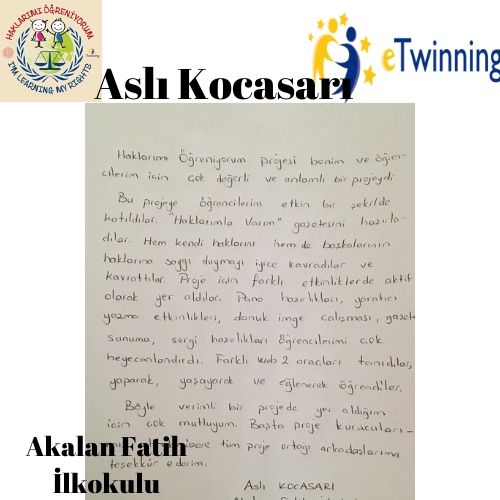 HAKLARIMI ÖĞRENİYORUM
I'M LEARNING MY RIGHTS
eTwinning
Aslı Kocasarı
Haklarımı Öğreniyorum projesi benim ve öğren-
cilerim için çok değerli ve anlamlı bir projeydi.
Bu projeye öğrencilerim etkin bir şekilde
katıldılar. "Haklarımla Varım" gazetesini hazırla-
dılar. Hem kendi haklarını hem de başkalarının
haklarına saygı duymayı iyice kavradılar ve
kavrattılar. Proje için farklı etkinliklerde aktif
olarak yer aldılar. Pano hazırlıkları, yaratıcı
yazma etkinlikleri, donuk imge çalışması, gazet
sunumu, sergi hazırlıkları öğrencilerimi çok
heyecanlandırdı. Farklı web 2 araçları tanıdılar,
yaparak, yaşayarak ve eğlenerek öğrendiler.
Böyle verimli bir projede yer aldığım
için çok mutluyum. Başta proje kurucuları-
tüm proje ortağı arkadaşlarıma
teşekkür ederim.
Aslı KOCASARI
Akalan Fatih
İlkokulu